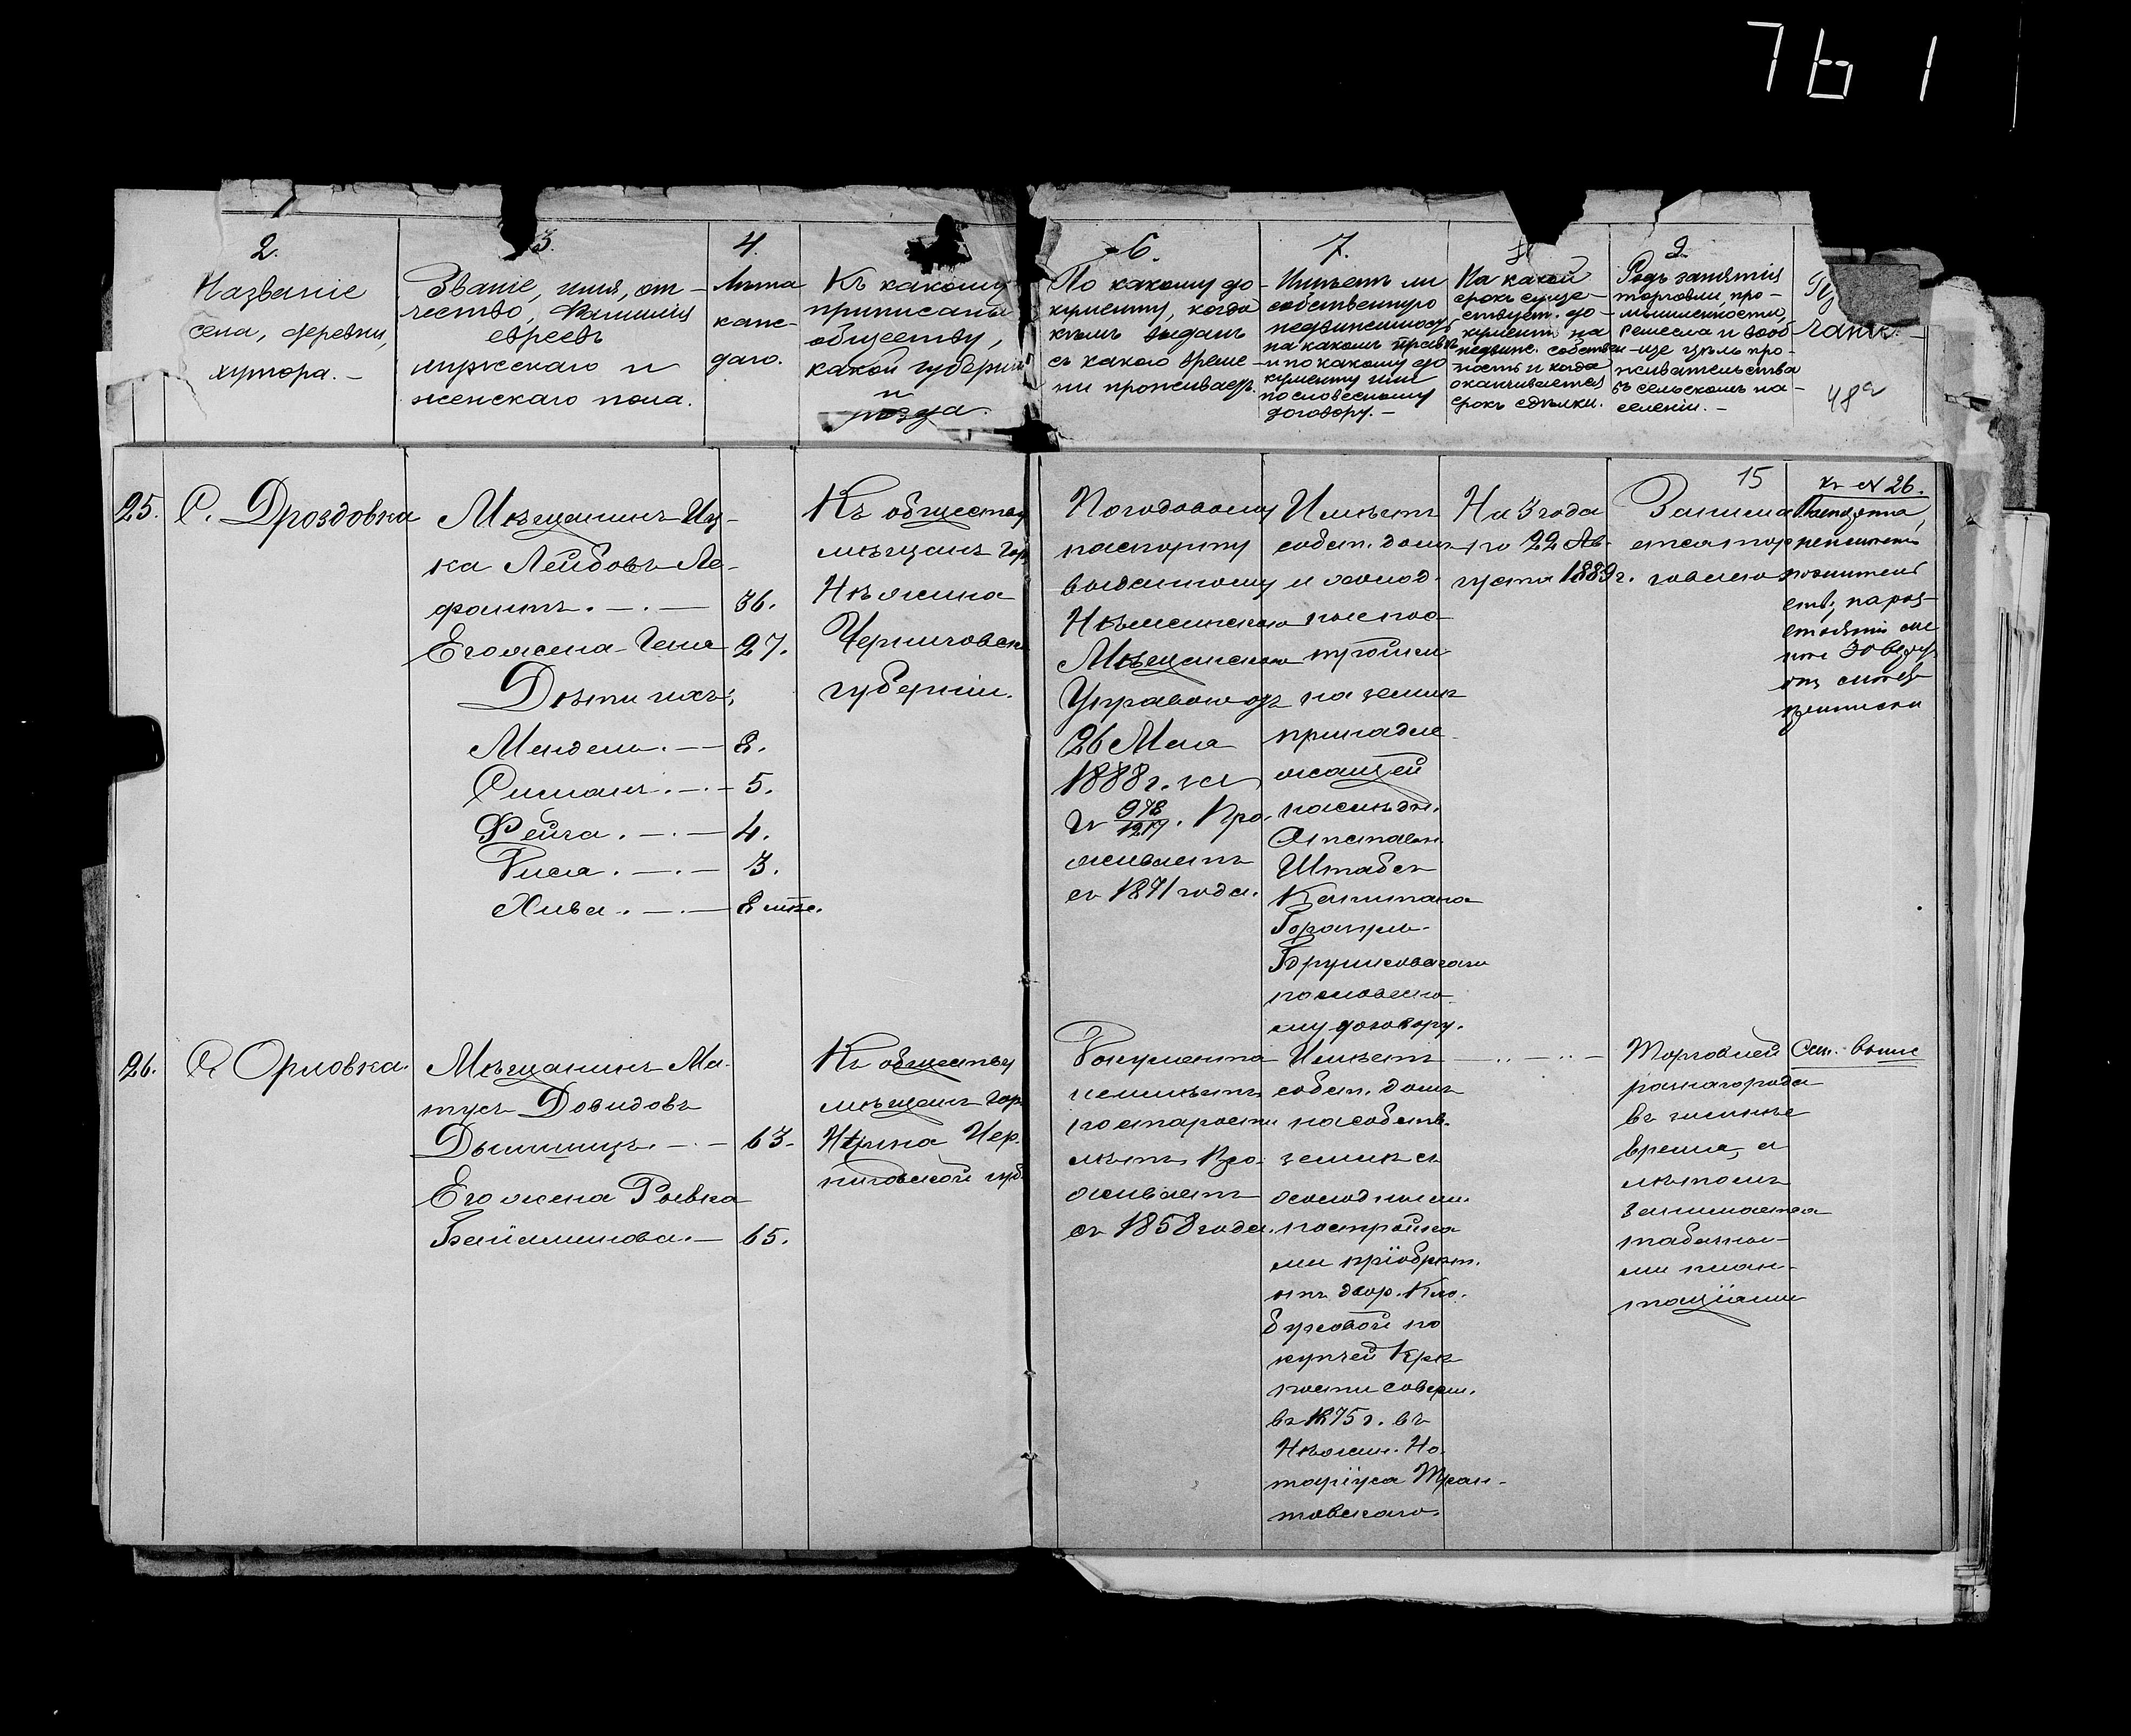 761
2.
Названіе
села, деревни,
хутора. —
3.
Званіе, имя, от-
чество, Фамилія
евреевъ
мужскаго и
женскаго пола.
4.
Лѣта
каж-
даго.
Къ какому
приписаны
обществу,
какой губерніи
и
уѣзда.
6.
По какому до-
кументу, когда
кѣмъ выданъ
съ какого време-
ни проживаетъ.
7.
Имѣетъ ли
собственную
недвижимость
на какомъ правѣ
и по какому до
кументу или
по словесному
договору. —
На какой
срокъ суще-
ствует. до-
кументъ на
недвиж. собствен-
ность и когда
оканчивается
срокъ сдѣлки.
9.
Родъ занятія
торговли, про-
мышленности,
ремесла и вооб
-ще цѣль про-
живательства
въ сельскомъ на-
селеніи. —
48
25.
С. Дроздовка
Мѣщанинъ Иц-
ка Лейбовъ Ле-
фантъ. — . — 36.
Его жена Геня 27.
Дѣти ихъ:
Мендель. — 8.
Симонъ. — . — 5.
Фейга. — . — 4.
Риса. — . — 3.
Хива. — . — 8 мѣс.
Къ обществу
мѣщанъ гор.
Нѣжина
Черниговской
губерніи.
Погодовому
паспорту
выданному
Нѣжинскою
Мѣщанскою
Управою отъ
26 Мая
1888 г. за
№ 978/1217. Про-
живаетъ
съ 1871 года.
Имѣетъ
собст. домъ
и холод-
ныя пос-
тройки
на землѣ
принадле-
жащей
наслѣдн.
Отставн.
Штабсъ
Капитана
Гороши-
Брушковскаго
по словесно-
му договору.
На 3 года
по 22 Ав-
густа 1889 г.
15
Занима
ется тор
говлею
къ № 26.
ств; на раз-
стояніи ме
нѣе 50 верст
отъ
26.
С. Орловка.
Мѣщанинъ Ма-
тусъ Довидовъ
Дымшицъ. — . — 63.
Его жена Рывка
Беніаминова. — 65.
Къ обществу
мѣщанъ гор.
Нѣжина Чер-
ниговской губ.
Документа
не имѣетъ
по старости
лѣтъ. Про-
живаетъ
съ 1858 года.
Имѣетъ
собст. домъ
на собств.
землѣ съ
холодными
постройка
ми пріобрѣт.
отъ двор. Кло-
буковой по
купчей крѣ
пости соверш.
въ 1875 г. въ
Нѣжин. Но-
таріуса Тран-
товскаго.
— .. — .. —
Торговлей
разнагорода
въ зимнее
время, а
лѣтомъ
занимается
табачны-
ми план-
таціями
См. выше